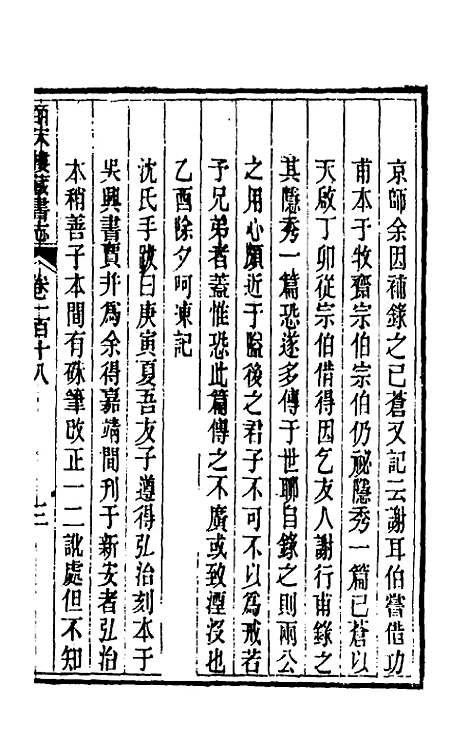 京師余因補錄之已蒼又記云謝耳伯嘗借功
甫本于牧齋宗伯宗伯仍祕隱秀一篇已蒼以
天啟丁卯從宗伯借得因乞友人謝行甫錄之
其隱秀一篇恐遂多傳于世聊自錄之則兩公
之用心頗近于隘後之君子不可不以爲戒若
予兄弟者蓋惟恐此篇傳之不廣或致湮没也
乙酉除夕呵凍記
沈氏手跋曰庚寅夏吾友子遵得弘治刻本于
吳興書賈并爲余得嘉靖間刊于新安者弘治
本稍善子本間有硃筆改正一二訛處但不知
皕宋樓藏書志 卷一百十八 三